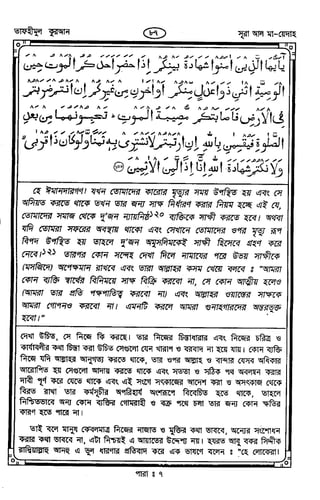 তাফহীমুল কুরআন
৮৭
সূরা আল মা-য়েদাহ
يٰٓاَيُّهَا الَّذِيْنَ اٰمَنُوْا شَهَادَةُ بَيْنِكُمْ اِذَا حَضَرَ اَحَدَكُمُ الْمَوْتُ حِيْنَ
الْوَصِيَّةِ اثْنٰنِ ذَوَا عَدْلٍ مِّنْكُمْ اَوْ اٰخَرٰنِ مِنْ غَيْرِكُمْ اِنْ اَنْتُمْ ضَرَبْتُمْ
فِى الْاَرْضِ فَاَصَابَتْكُمْ مُّصِيْبَةُ الْمَوْتِ ؕ تَحْبِسُوْنَهُمَا مِنْۢ بَعْدِ
الصَّلٰوةِ فَيُقْسِمٰنِ بِاللّٰهِ اِنِ ارْتَبْتُمْ لَا نَشْتَرِىْ بِهٖ ثَمَنًا وَّلَوْ كَانَ ذَا قُرْبٰى ۙ
وَلَا نَكْتُمُ شَهَادَةَ اللّٰهِ اِنَّآ اِذًا لَّمِنَ الْاٰثِمِيْنَ ﴿١٠٦﴾
হে ঈমানদারগণ! যখন তোমাদের কারোর মৃত্যুর সময় উপস্থিত হয় এবং সে
অসিয়ত করতে থাকে তখন তার জন্য সাক্ষ্য নির্ধারণ করার নিয়ম হচ্ছে এই যে,
তোমাদের সমাজ থেকে দু'জন ন্যায়নিষ্ঠ১২০ ব্যক্তিকে সাক্ষী করতে হবে। অথবা
যদি তোমরা সফরের অবস্থায় থাকো এবং সেখানে তোমাদের ওপর মৃত্যু রূপ
বিপদ উপস্থিত হয় তাহলে দু'জন অমুসলিমকেই সাক্ষী হিসেবে গ্রহণ করে
নেবে।১২১ তারপর কোন সন্দেহ দেখা দিলে নামাযের পরে উভয় সাক্ষীকে
(মসজিদে) অপেক্ষমান রাখবে এবং তারা আল্লাহর কসম খেয়ে বলবে : "আমরা
কোন ব্যক্তি স্বার্থের বিনিময়ে সাক্ষ্য বিক্রি করবো না, সে কোন আত্মীয় হলেও
(আমরা তার প্রতি পক্ষপাতিত্ব করবো না) এবং আল্লাহর ওয়াস্তের সাক্ষ্যকে
আমরা গোপনও করবো না। এমনটি করলে আমরা গুনাহগারদের অন্তরভুক্ত
হবো।"
দেখা উচিত, সে নিজে কি করছে। তার নিজের চিন্তাধারার এবং নিজের চরিত্র ও
কার্যাবলীর কথা চিন্তা করা উচিত সেগুলো যেন খারাপ ও বরবাদ না হয়ে যায়। কোন ব্যক্তি
নিজে যদি আল্লাহর আনুগত্য করতে থাকে, তার ওপর আল্লাহ ও বান্দার যেসব অধিকার
আরোপিত হয় সেগুলো আদায় করতে থাকে এবং সততা ও সঠিক পথ অবলম্বন করার
দাবী পূর্ণ করে যেতে থাকে এবং এই সংগে সৎকাজের আদেশ করা ও অসৎকাজ থেকে
বিরত রাখা তার কর্মসূচীর অপরিহার্য অংশরূপে বিবেচিত হতে থাকে, তাহলে
নিশ্চিতভাবে অন্য কোন ব্যক্তির গোমরাহী ও বক্র পথে চলা তার জন্য কোন ক্ষতির
কারণ হতে পারে না।
তাই বলে মানুষ কেবলমাত্র নিজের নাজাত ও মুক্তির কথা ভাববে, অন্যের সংশোধন
করার কথা ভাববে না, এটা নিশ্চয়ই এ আয়াতের উদ্দেশ্য নয়। হযরত আবু বকর সিদ্দীক
রাদিয়াল্লাহু আনহু এ ভুল ধারণার প্রতিবাদ করে এক ভাষণে বলেন : "হে লোকেরা!
পারা : ৭